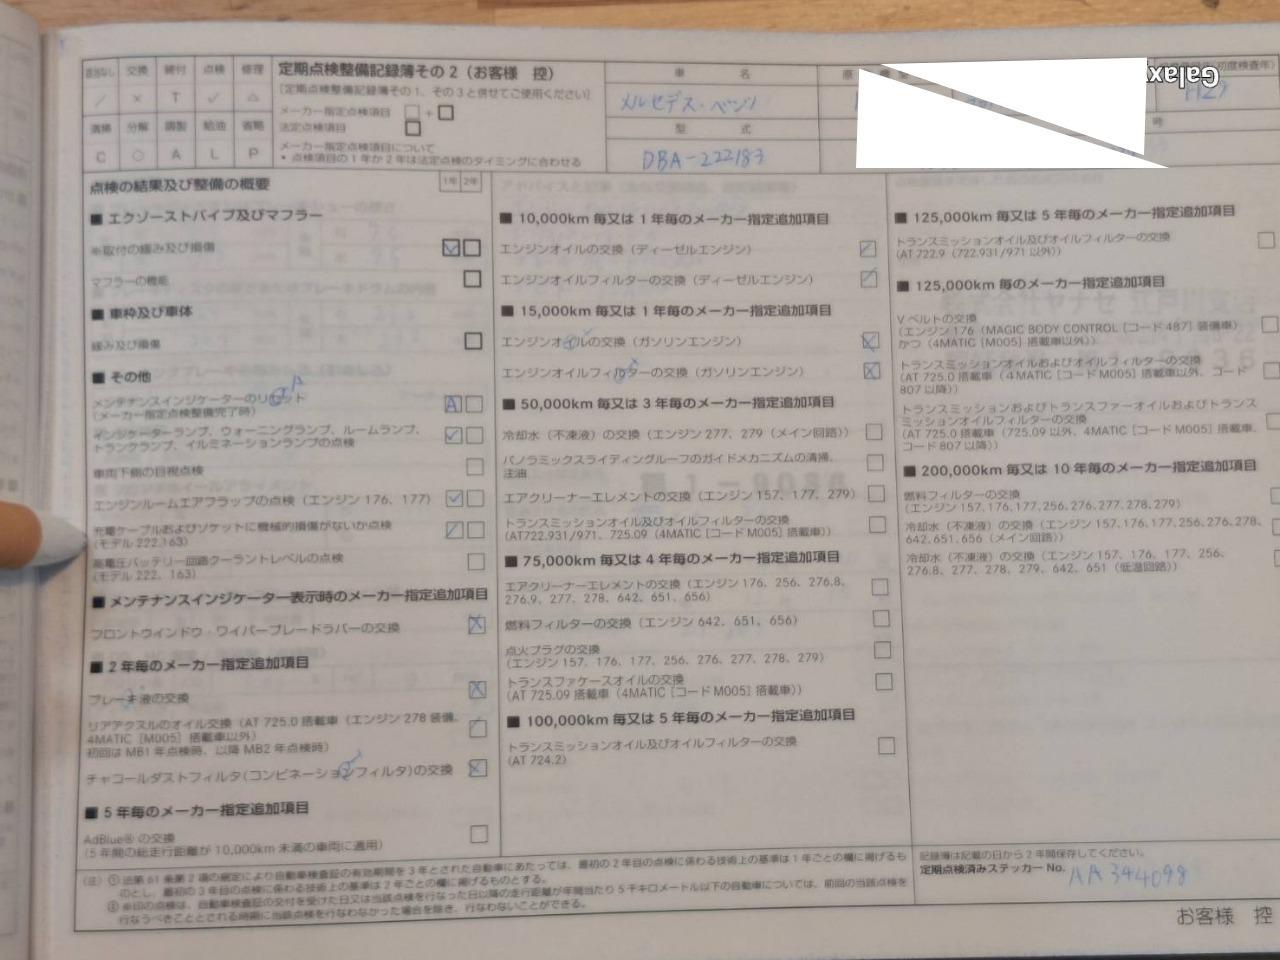 該当なし 交換 締付 点検 修理
／ × T ✓ △
清掃 分解 調整 給油 省略
C ○ A L P
定期点検整備記録簿その2（お客様 控）
[定期点検整備記録簿その1、その3と併せてご使用ください]
メーカー指定点検項目 □ + □
法定点検項目 □
メーカー指定点検項目について
・点検項目の1年か2年は法定点検のタイミングに合わせる
車 名
メルセデス・ベンツ
型 式
DBA-222183
(初度検査年)
H29
号
Galax
点検の結果及び整備の概要 1年 2年
■ エクゾーストパイプ及びマフラー
※取付の緩み及び損傷
マフラーの機能
■ 車枠及び車体
緩み及び損傷
■ その他
メンテナンスインジケーターのリセット A
(メーカー指定点検整備完了時)
インジケーターランプ、ウォーニングランプ、ルームランプ、
トランクランプ、イルミネーションランプの点検
車両下側の目視点検
エンジンルームエアフラップの点検（エンジン176、177）
充電ケーブルおよびソケットに機械的損傷がないか点検
(モデル222.163)
高電圧バッテリー回路クーラントレベルの点検
(モデル222、163)
■ メンテナンスインジケーター表示時のメーカー指定追加項目
フロントウインドウ・ワイパーブレードラバーの交換
■ 2年毎のメーカー指定追加項目
ブレーキ液の交換
リアアクスルのオイル交換（AT 725.0 搭載車（エンジン278装備、
4MATIC［M005］搭載車以外）
初回はMB1年点検時、以降MB2年点検時）
チャコールダストフィルタ(コンビネーションフィルタ)の交換
■ 5年毎のメーカー指定追加項目
AdBlue®の交換
(5年間の総走行距離が10,000km未満の車両に適用)
■ 10,000km毎又は1年毎のメーカー指定追加項目
エンジンオイルの交換（ディーゼルエンジン）
エンジンオイルフィルターの交換（ディーゼルエンジン）
■ 15,000km毎又は1年毎のメーカー指定追加項目
エンジンオイルの交換（ガソリンエンジン）
エンジンオイルフィルターの交換（ガソリンエンジン）
■ 50,000km毎又は3年毎のメーカー指定追加項目
冷却水（不凍液）の交換（エンジン277、279（メイン回路））
パノラミックスライディングルーフのガイドメカニズムの清掃、
注油
エアクリーナーエレメントの交換（エンジン157、177、279）
トランスミッションオイル及びオイルフィルターの交換
(AT722.931/971、725.09（4MATIC［コードM005］搭載車))
■ 75,000km毎又は4年毎のメーカー指定追加項目
エアクリーナーエレメントの交換（エンジン176、256、276.8、
276.9、277、278、642、651、656）
燃料フィルターの交換（エンジン642、651、656）
点火プラグの交換
(エンジン157、176、177、256、276、277、278、279)
トランスファケースオイルの交換
(AT 725.09 搭載車（4MATIC［コードM005］搭載車))
■ 100,000km毎又は5年毎のメーカー指定追加項目
トランスミッションオイル及びオイルフィルターの交換
(AT 724.2)
■ 125,000km毎又は5年毎のメーカー指定追加項目
トランスミッションオイル及びオイルフィルターの交換
(AT 722.9（722.931/971以外))
■ 125,000km毎のメーカー指定追加項目
Vベルトの交換
(エンジン176（MAGIC BODY CONTROL［コード487］装備車）
かつ（4MATIC［M005］搭載車以外))
トランスミッションオイルおよびオイルフィルターの交換
(AT 725.0 搭載車（4MATIC［コードM005］搭載車以外、コード
807以降))
トランスミッションおよびトランスファーオイルおよびトランス
ミッションオイルフィルターの交換
(AT 725.0 搭載車（725.09以外、4MATIC［コードM005］搭載車、
コード807以降))
■ 200,000km毎又は10年毎のメーカー指定追加項目
燃料フィルターの交換
(エンジン157,176,177,256,276,277,278,279)
冷却水（不凍液）の交換（エンジン157,176,177,256,276,278、
642,651,656（メイン回路))
冷却水（不凍液）の交換（エンジン157、176、177、256、
276.8、277、278、279、642、651（低温回路))
(注) ① 法第61条第2項の規定により自動車検査証の有効期間を3年とされた自動車にあたっては、最初の2年目の点検に係わる技術上の基準は1年ごとの欄に掲げるも
のとし、最初の3年目の点検に係わる技術上の基準は2年ごとの欄に掲げるものとする。
② ※印の点検は、自動車検査証の交付を受けた日又は当該点検を行なった日以降の走行距離が年間当たり5千キロメートル以下の自動車については、前回の当該点検を
行なうべきこととされる時期に当該点検を行なわなかった場合を除き、行なわないことができる。
記録簿は記載の日から2年間保存してください。
定期点検済みステッカーNo. AA344098
お客様 控